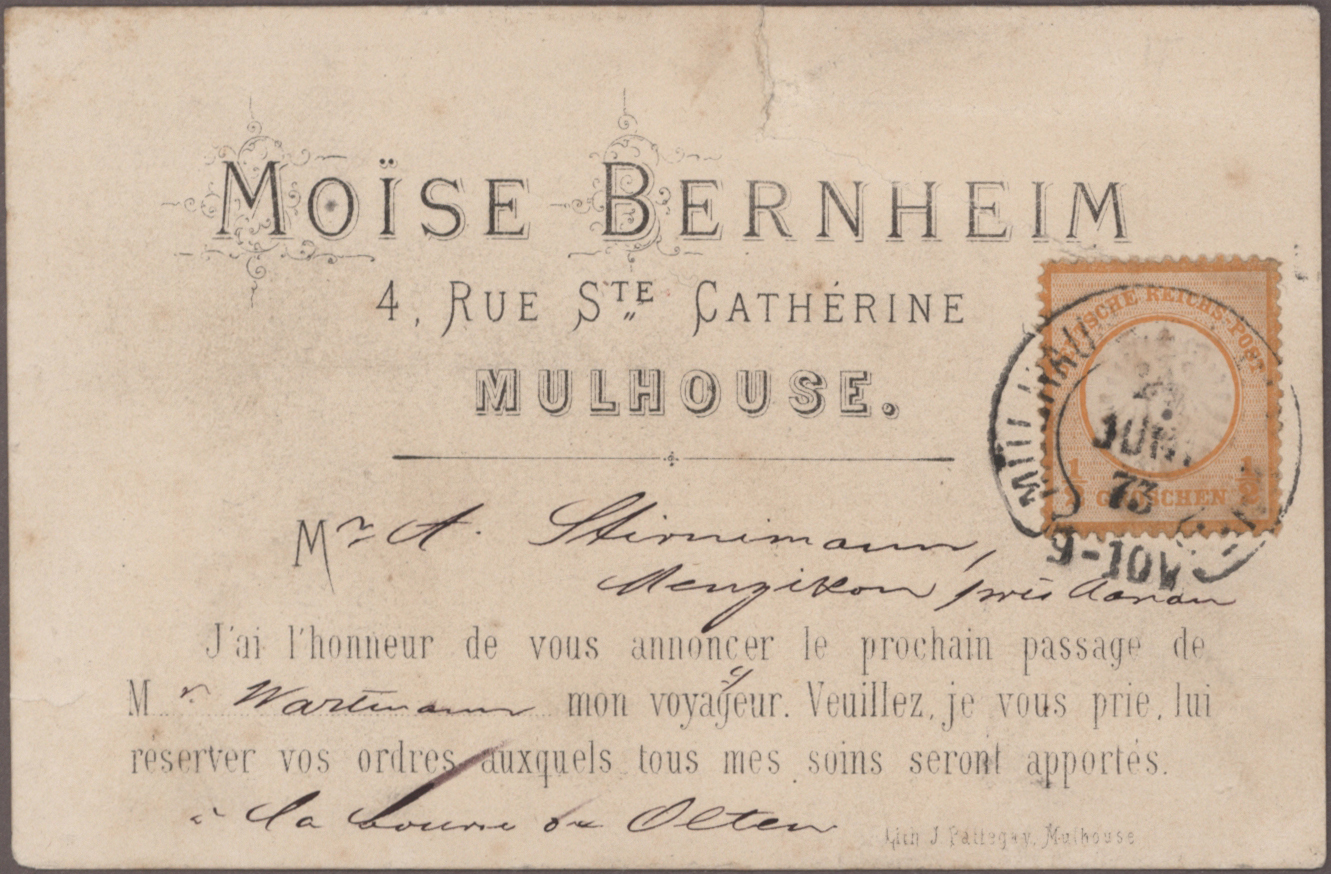 MOÏSE BERNHEIM
4, RUE STE CATHÉRINE
MULHOUSE.
DEUTSCHE REICHS-POST
1/2 GROSCHEN 1/2
JUNI
73
9-10V
Mr A. Stirnimann,
Menzikon près Aarau
J'ai l'honneur de vous annoncer le prochain passage de
Mr. Wartmann mon voyageur. Veuillez, je vous prie, lui
reserver vos ordres auxquels tous mes soins seront apportés.
à la bourse de Olten
Lith J. Pattegay, Mulhouse